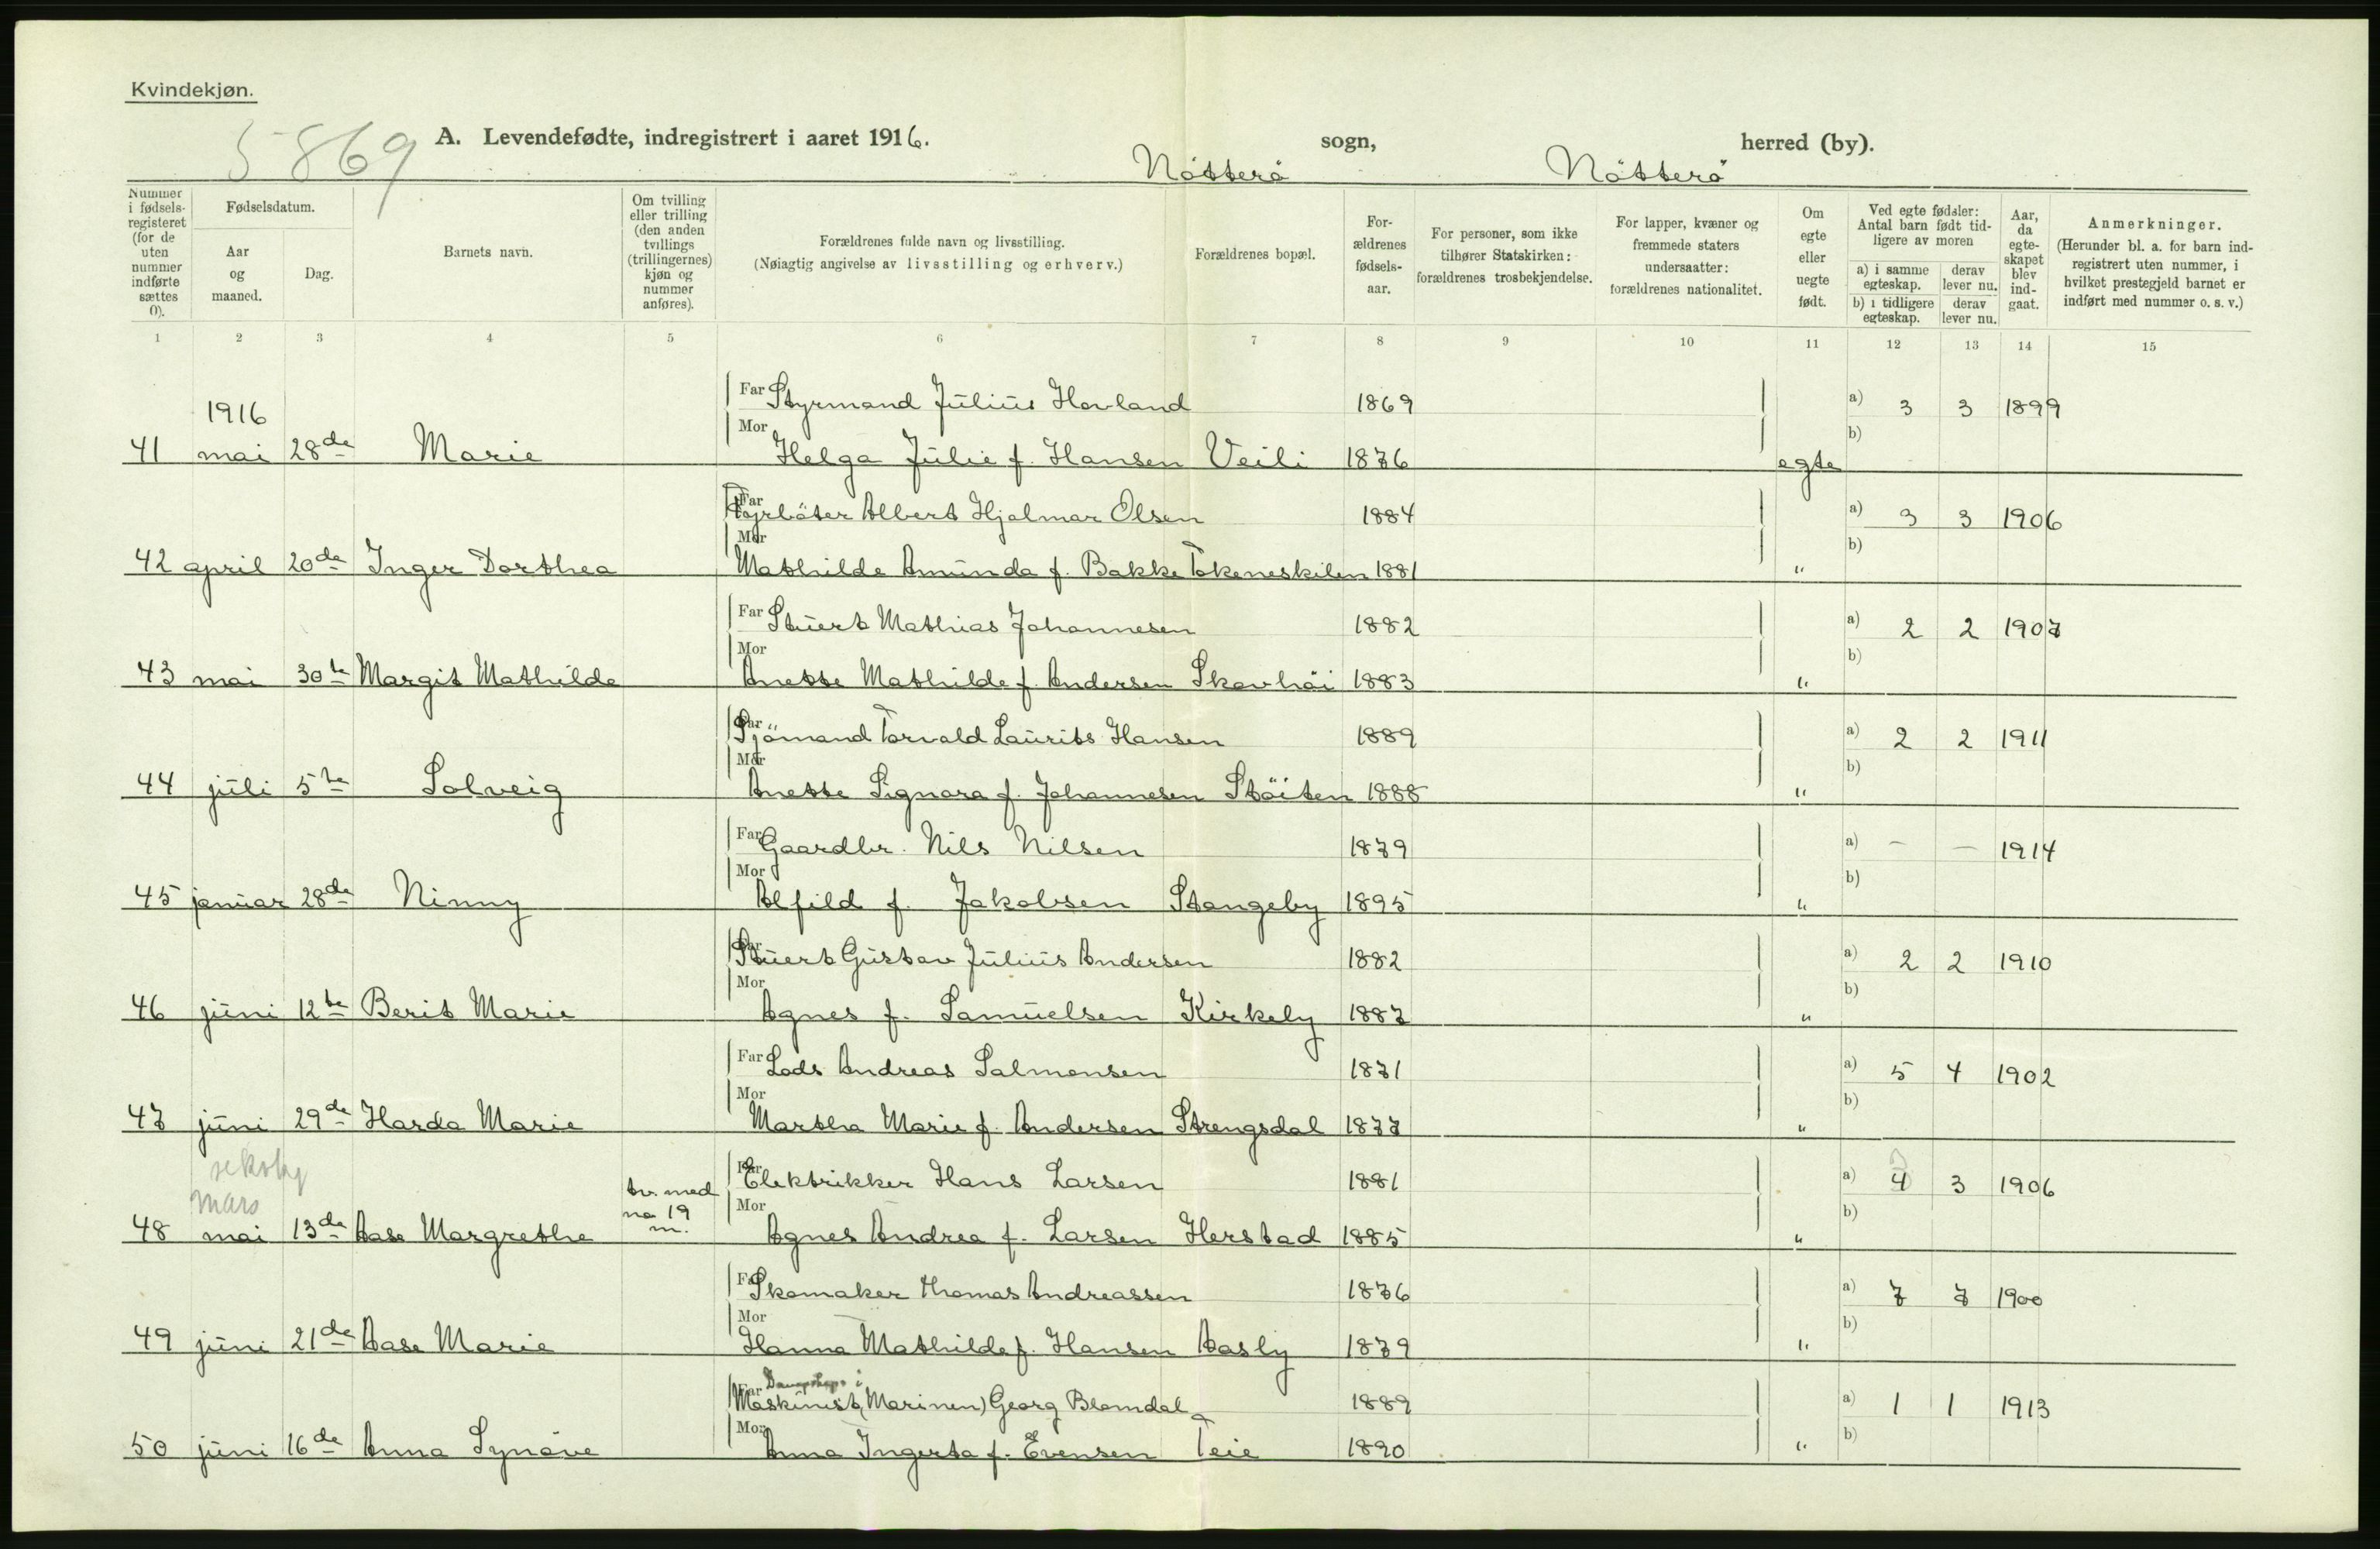 Kvindekjøn.
5869
A. Levendefødte, indregistrert i aaret 1916. Nötterö sogn, Nötterö herred (by).
Nummer i fødselsregisteret (for de uten nummer indførte sættes 0).
Fødselsdatum.
Aar og maaned.
Dag.
Barnets navn.
Om tvilling eller trilling (den anden tvillings (trillingernes) kjøn og nummer anføres).
Forældrenes fulde navn og livsstilling.
(Nøiagtig angivelse av livsstilling og erhverv.)
Forældrenes bopæl.
Forældrenes fødselsaar.
For personer, som ikke tilhører Statskirken: forældrenes trosbekjendelse.
For lapper, kvæner og fremmede staters undersaatter: forældrenes nationalitet.
Om egte eller uegte født.
Ved egte fødsler: Antal barn født tidligere av moren
a) i samme egteskap. derav lever nu.
b) i tidligere egteskap. derav lever nu.
Aar, da egteskapet blev indgaat.
Anmerkninger.
(Herunder bl. a. for barn indregistrert uten nummer, i hvilket prestegjeld barnet er indført med nummer o. s. v.)
1 2 3 4 5 6 7 8 9 10 11 12 13 14 15
1916 Far Styrmand Julius Hovland 1869 a) 3 3 1899
41 mai 28de Marie Mor Helga Julie f. Hansen Veili 1876 egte b)
Far Fyrböter Albert Hjalmar Olsen 1884 a) 3 3 1906
42 april 20de Inger Dorthea Mor Mathilde Amunda f. Bakke Tokeneskilen 1881 " b)
Far Stuert Mathias Johannesen 1882 a) 2 2 1907
43 mai 30te Margit Mathilde Mor Anette Mathilde f. Andersen Skovhöi 1883 " b)
Far Sjömand Torvald Laurits Hansen 1889 a) 2 2 1911
44 juli 5te Solveig Mor Anette Signora f. Johannesen Stöiten 1888 " b)
Far Gaardbr. Nils Nilsen 1879 a) - - 1914
45 januar 28de Ninny Mor Alfild f. Jakobsen Stangeby 1895 " b)
Far Stuert Gustav Julius Andersen 1882 a) 2 2 1910
46 juni 12te Berit Marie Mor Agnes f. Samuelsen Kirkeby 1887 " b)
Far Lods Andreas Salmonsen 1871 a) 5 4 1902
47 juni 29de Harda Marie Mor Martha Marie f. Andersen Strengsdal 1877 " b)
mars tv. med no 19 m. Far Elektrikker Hans Larsen 1881 a) 4 3 1906
48 mai 13de Aase Margrethe Mor Agnes Andrea f. Larsen Herstad 1885 " b)
Far Skomaker Thomas Andreassen 1876 a) 7 7 1900
49 juni 21de Aase Marie Mor Hanna Mathilde f. Hansen Aasly 1879 " b)
Far Maskinist (Marinen) Georg Blomdal 1889 a) 1 1 1913
50 juni 16de Anna Synöve Mor Anna Ingerta f. Evensen Teie 1890 " b)